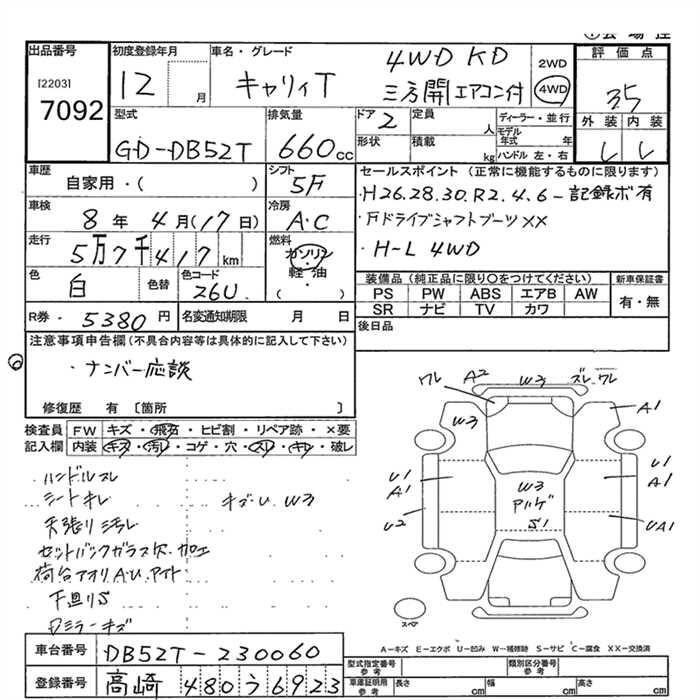 出品番号
[2203]
7092
初度登録年月
12
月
車名・グレード
キャリィT
4WD KD
三方開エアコン付
2WD
4WD
評価点
35
外装 内装
型式
GD-DB52T
排気量
660 cc
ドア 2
形状
定員
人
積載
kg
ディーラー・並行
モデル年式 年
ハンドル 左・右
車歴
自家用・( )
シフト
5F
車検
8年 4月(17日)
冷房
A・C
走行
5万7千417km
燃料
ガソリン
軽油
( )
色
白
色替
色コード
26U
R券 - 5380 円
名変通知期限 月 日
セールスポイント (正常に機能するものに限ります)
・H26.28.30.R2.4.6-記録ボ有
・Fドライブシャフトブーツ××
・H-L 4WD
装備品(純正品に限り〇をつけてください)
新車保証書
PS PW ABS エアB AW
SR ナビ TV カワ
有・無
後日品
注意事項申告欄(不具合内容等は具体的に記入して下さい)
⑥
・ナンバー応談
修復歴 有 〔箇所 〕
検査員記入欄
FW キズ・飛石・ヒビ割・リペア跡・×要
内装 キズ・汚レ・コゲ・穴・スレ・キレ・破レ
ハンドルスレ
シートキレ キズU W3
天張り汚レ
セットバックガラス穴.加工
荷台アオリA.U.アト
下廻りS
Dミラーキズ
ワレ A2 W3 ズレワレ
W3 A1
U1 A1
W3
アルゲ
S1
U1 A1
U2
UA1
スペア
A-キズ E-エクボ U-凹み W-補修跡 S-サビ C-腐食 XX-交換済
車台番号
DB52T-230060
登録番号
高崎 480う6923
型式指定番号 参考
類別区分番号 参考
車庫証明用 参考
長さ cm 幅 cm 高さ cm